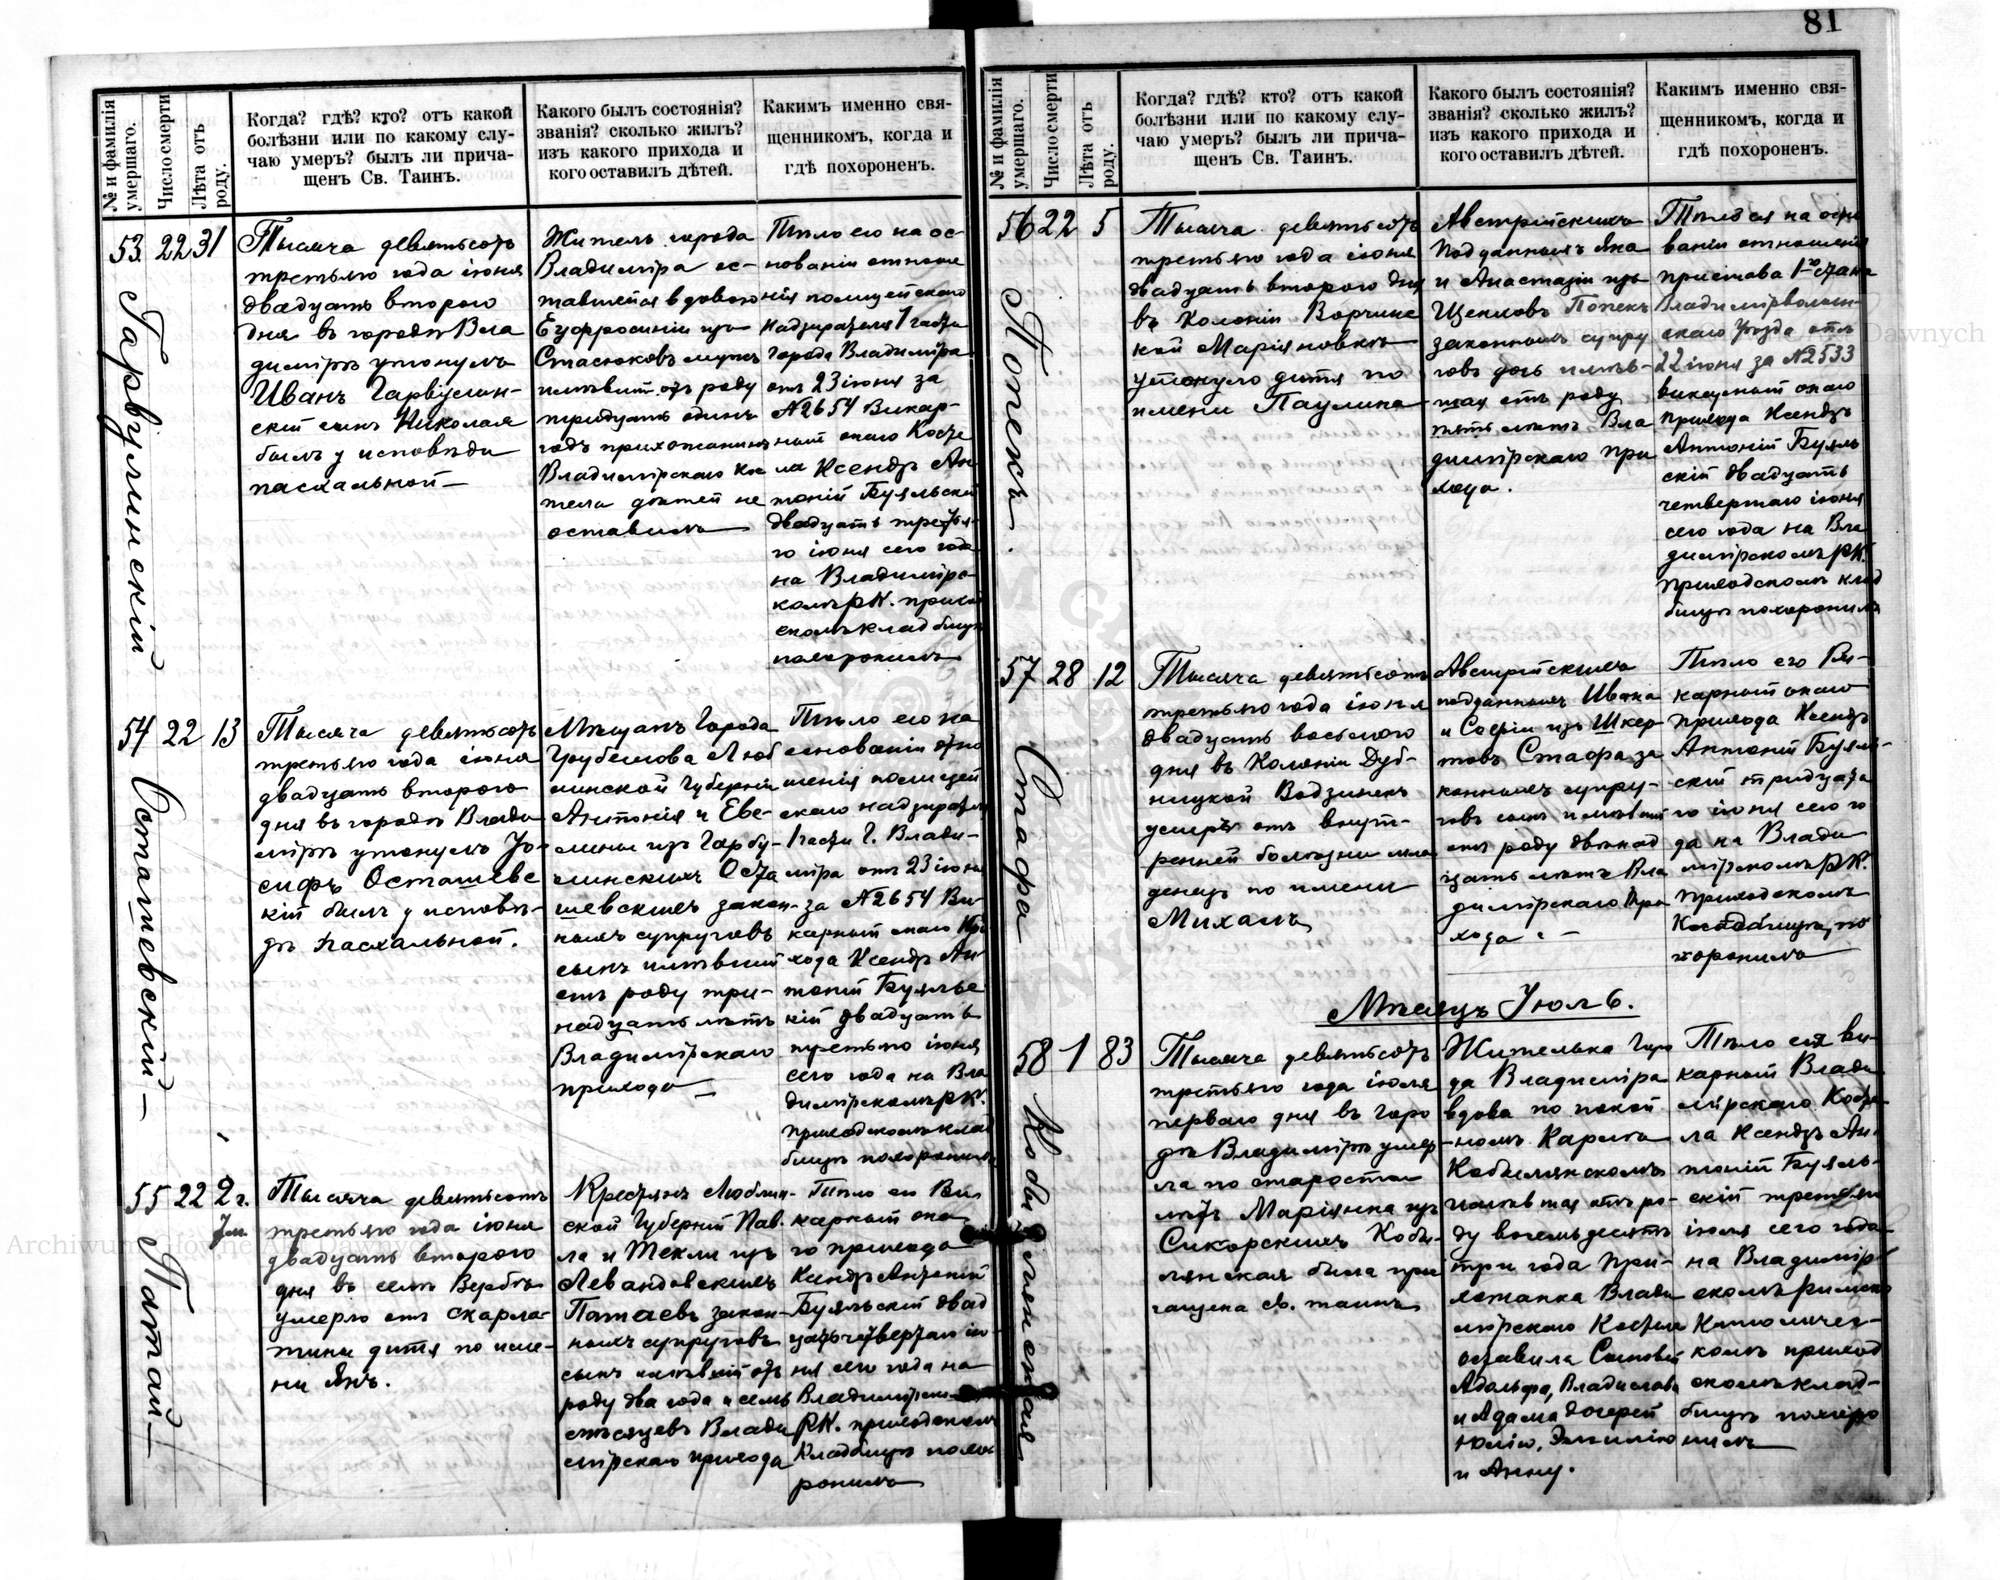 81
№ и фамилія умершаго.
Число смерти
Лѣта отъ роду.
Когда? гдѣ? кто? отъ какой
болѣзни или по какому слу-
чаю умеръ? былъ ли прича-
щенъ Св. Таинъ.
Какого былъ состоянія?
званія? сколько жилъ?
изъ какого прихода и
кого оставилъ дѣтей.
Какимъ именно свя-
щенникомъ, когда и
гдѣ похороненъ.
53. 22 31
Гарвулинскій
Тысяча девятьсотъ
третьяго года іюня
двадцать второго
дня въ городѣ Вла
димірѣ утонулъ
Иванъ Гарвулин-
скій сынъ Николая
былъ у исповѣди
пасхальной —
Житель города
Владиміра ос-
тавшейся вдовою
Евфросиніи изъ
Стасюковъ мужъ
имѣвшій отъ роду
тридцать одинъ
годъ прихожанинъ
Владимірскаго Кос
тела дѣтей не
оставилъ
Тѣло его на ос-
нованіи отноше
нія полицейскаго
Надзирателя 1 части
города Владиміра
отъ 23 іюня за
№ 2654 Викар-
ный онаго Косте
ла Ксендзъ Ан
тоній Буяльскій
двадцать третья-
го іюня сего года
на Владимірс-
комъ РК. приход
скомъ кладбищѣ
похоронилъ
54 22 13
Осташевскій —
Тысяча девятьсотъ
третьяго года іюня
двадцать второго
дня въ городѣ Влади
мірѣ утонулъ Іо-
сифъ Осташевс
кій былъ у исповѣ-
дѣ пасхальной.
Мѣщанъ Города
Грубешова Люб
линской Губерніи
Антонія и Еве-
лины изъ Гарбу-
линскихъ Оста
шевскихъ закон-
ныхъ супруговъ
сынъ имѣвшій
отъ роду три-
надцать лѣтъ
Владимірскаго
прихода —
Тѣло его на
основаніи отно
шенія полицей
скаго надзирателя
1 части г. Влади-
міра отъ 23 іюня
за № 2654 Ви-
карный онаго При
хода Ксендзъ Ан
тоній Буяльс
кій двадцать
третьяго іюня
сего года на Вла
димірскомъ РК.
приходскомъ клад
бищѣ похоронилъ
55 22 2 г.
7 м.
Патай —
Тысяча девятьсотъ
третьяго года іюня
двадцать второго
дня въ селѣ Вербѣ
умерло отъ скарла-
тины дитя по име-
ни Янъ.
Крестьянъ Люблин-
ской Губерніи Пав.
ла и Теклы изъ
Левандовскихъ
Патаевъ закон-
ныхъ супруговъ
сынъ имѣвшій отъ
роду два года и семь
мѣсяцевъ Влади
мірскаго прихода
Тѣло его Ви
карный она
го прихода
Ксендзъ Антоній
Буяльскій двад
цать четвертаго ію-
ня сего года на
Владимірскомъ
РК. приходскомъ
Кладбищѣ похо
ронилъ
№ и фамилія умершаго.
Число смерти
Лѣта отъ роду.
Когда? гдѣ? кто? отъ какой
болѣзни или по какому слу-
чаю умеръ? былъ ли прича-
щенъ Св. Таинъ.
Какого былъ состоянія?
званія? сколько жилъ?
изъ какого прихода и
кого оставилъ дѣтей.
Какимъ именно свя-
щенникомъ, когда и
гдѣ похороненъ.
56 22 5
Попекъ.
Тысяча девятьсотъ
третьяго года іюня
двадцать второго дня
въ Колоніи Ворчинс
кой Маріяновкѣ
утонуло дитя по
имени Паулина
Австрійскихъ
Подданныхъ Яна
и Анастазіи изъ
Щепловъ Попекъ
законныхъ супру
говъ дочь имѣв-
шая отъ роду
пять лѣтъ Вла
димірскаго при
хода.
Тѣло ея на осно
ваніи отношенія
пристава 1-го стана
Владимірволын-
скаго Уѣзда отъ
22 іюня за № 2533
викарный онаго
прихода Ксендзъ
Антоній Буяль
скій двадцать
четвертаго іюня
сего года на Вла
димірскомъ РК.
приходскомъ клад
бищѣ похоронилъ
57 28 12
Стафа
Тысяча девятьсотъ
третьяго года іюня
двадцать восьмого
дня въ Колоніи Дуб-
ницкой Водзинекъ
умеръ отъ внут-
ренней болѣзни мла
денецъ по имени
Михалъ
Австрійскихъ
подданныхъ Ивана
и Софіи изъ Шкер-
товъ Стафа за
конныхъ супру-
говъ сынъ имѣвшій
отъ роду двѣнад
цать лѣтъ Вла
димірскаго При
хода. —
Тѣло его Ви-
карный онаго
прихода Ксендзъ
Антоній Буяль-
скій тридцата
го іюня сего го
да на Влади
мірскомъ РК.
приходскомъ
Кладбищѣ, по
хоронилъ
Мѣсяцъ Іюль.
58 1 83
Кобылянская
Тысяча девятьсотъ
третьяго года іюля
перваго дня въ горо
дѣ Владимірѣ умер
ла по старости
лѣтъ Маріянна изъ
Сикорскихъ Кобы-
лянская была при
чащена Св. таинъ
Жителька Горо
да Владиміра
вдова по покой
номъ Каролѣ
Кобылянскомъ
имѣвшая отъ ро-
ду восемьдесятъ
три года При-
хожанка Влади
мірскаго Костела
оставила Сыновей
Адольфа, Владислава
и Адама дочерей
Юлію, Эмилію
и Анну.
Тѣло ея ви-
карный Влади
мірскаго Косте-
ла Ксендзъ Ан-
тоній Буяль-
скій третьяго
іюля сего года
на Владимір
скомъ римско
Католичес-
комъ приход
скомъ клад-
бищѣ похоро
нилъ